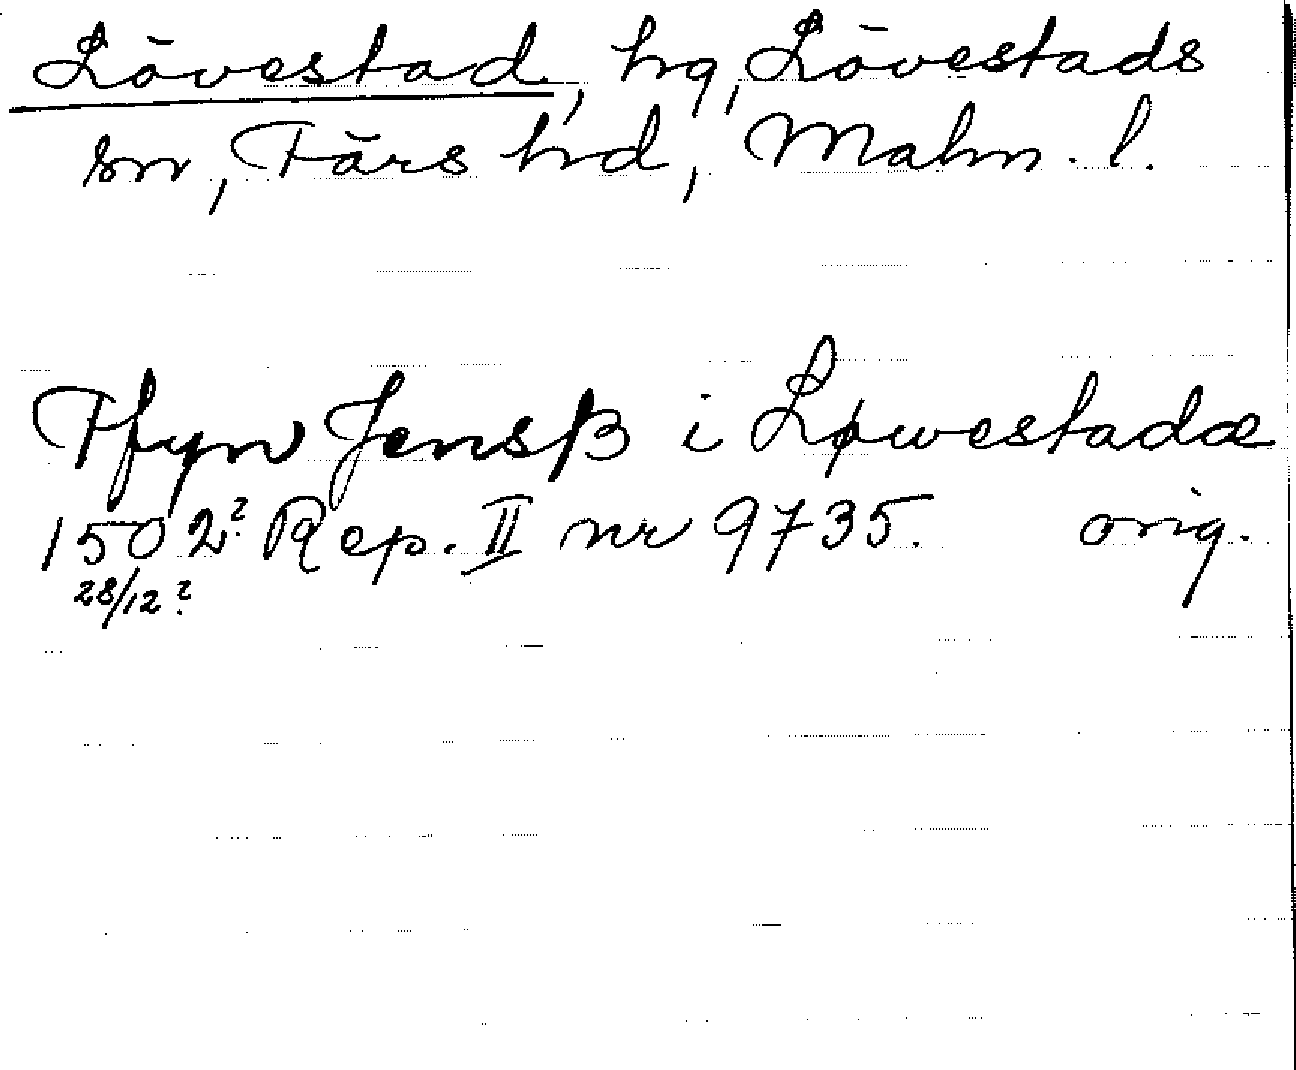 Lövestad, hg, Lövestads
sn, Färs hd, Malm. l.
Tfyn Jensß i Løwestadæ
1502? Rep. II nr 9735. orig.
28/12?